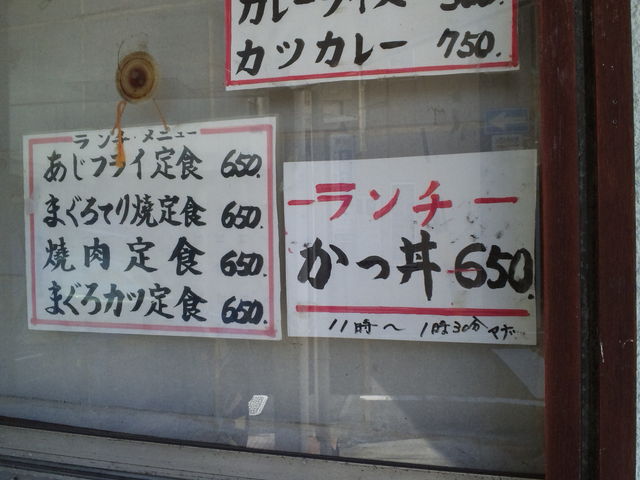 カレーライス
カツカレー 750.
ランチ・メニュー
あじフライ定食 650.
まぐろてり焼定食 650.
焼肉定食 650.
まぐろカツ定食 650.
ーランチー
かっ丼 650.
11時～1時30分マデ